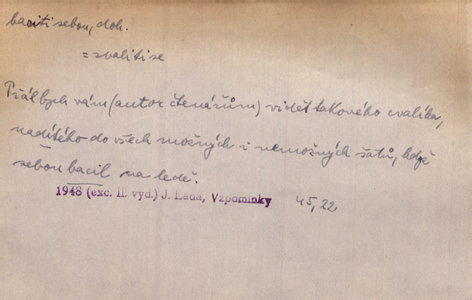 baciti sebou, doh.
= svaliti se
Přál bych vám (autor čtenářům) vidět takového cvalíka,
naditého do všech možných i nemožných šatů, když
sebou bacil na ledě.
1948 (exc. II. vyd.) J. Lada, Vzpomínky 45, 22